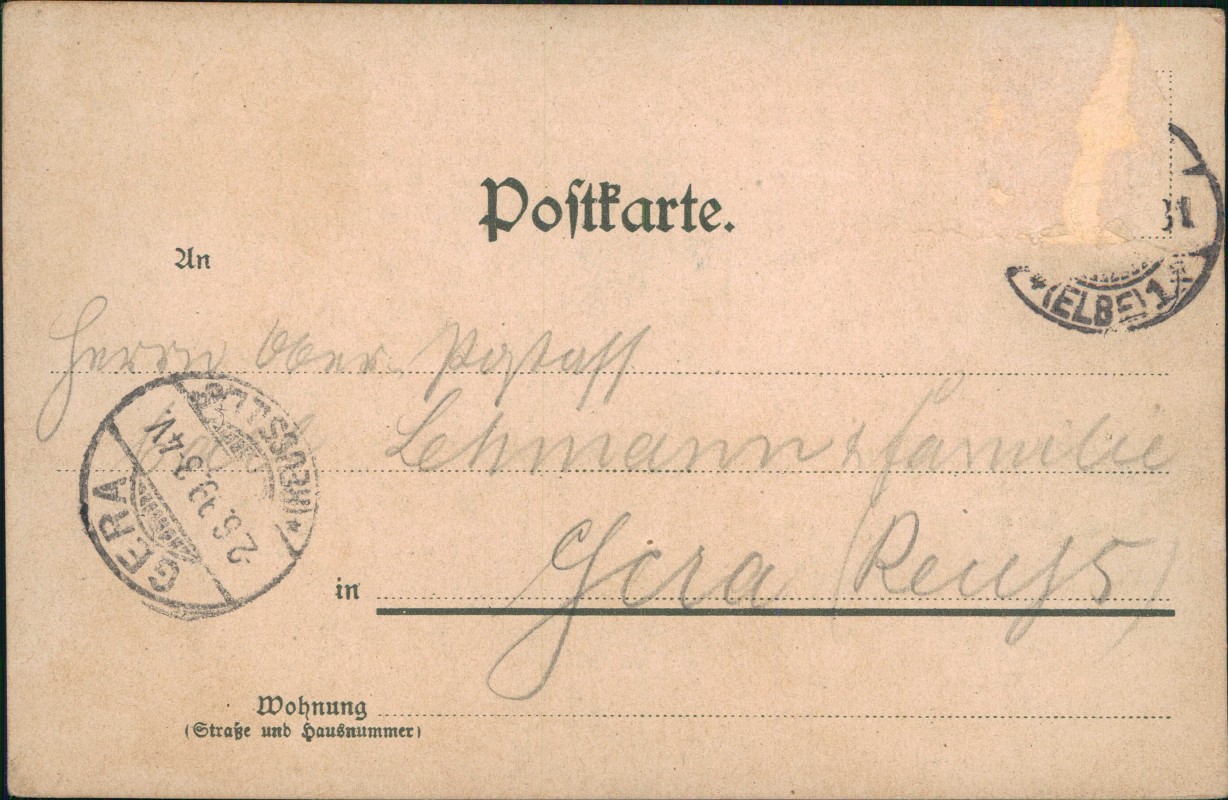 Postkarte.
An
Herrn Ober Postass
Lehmann & familie
in Gera (Reuß)
Wohnung
(Straße und Hausnummer)
GERA (REUSS) 2.6.99. 3-4V
*(ELBE) 1